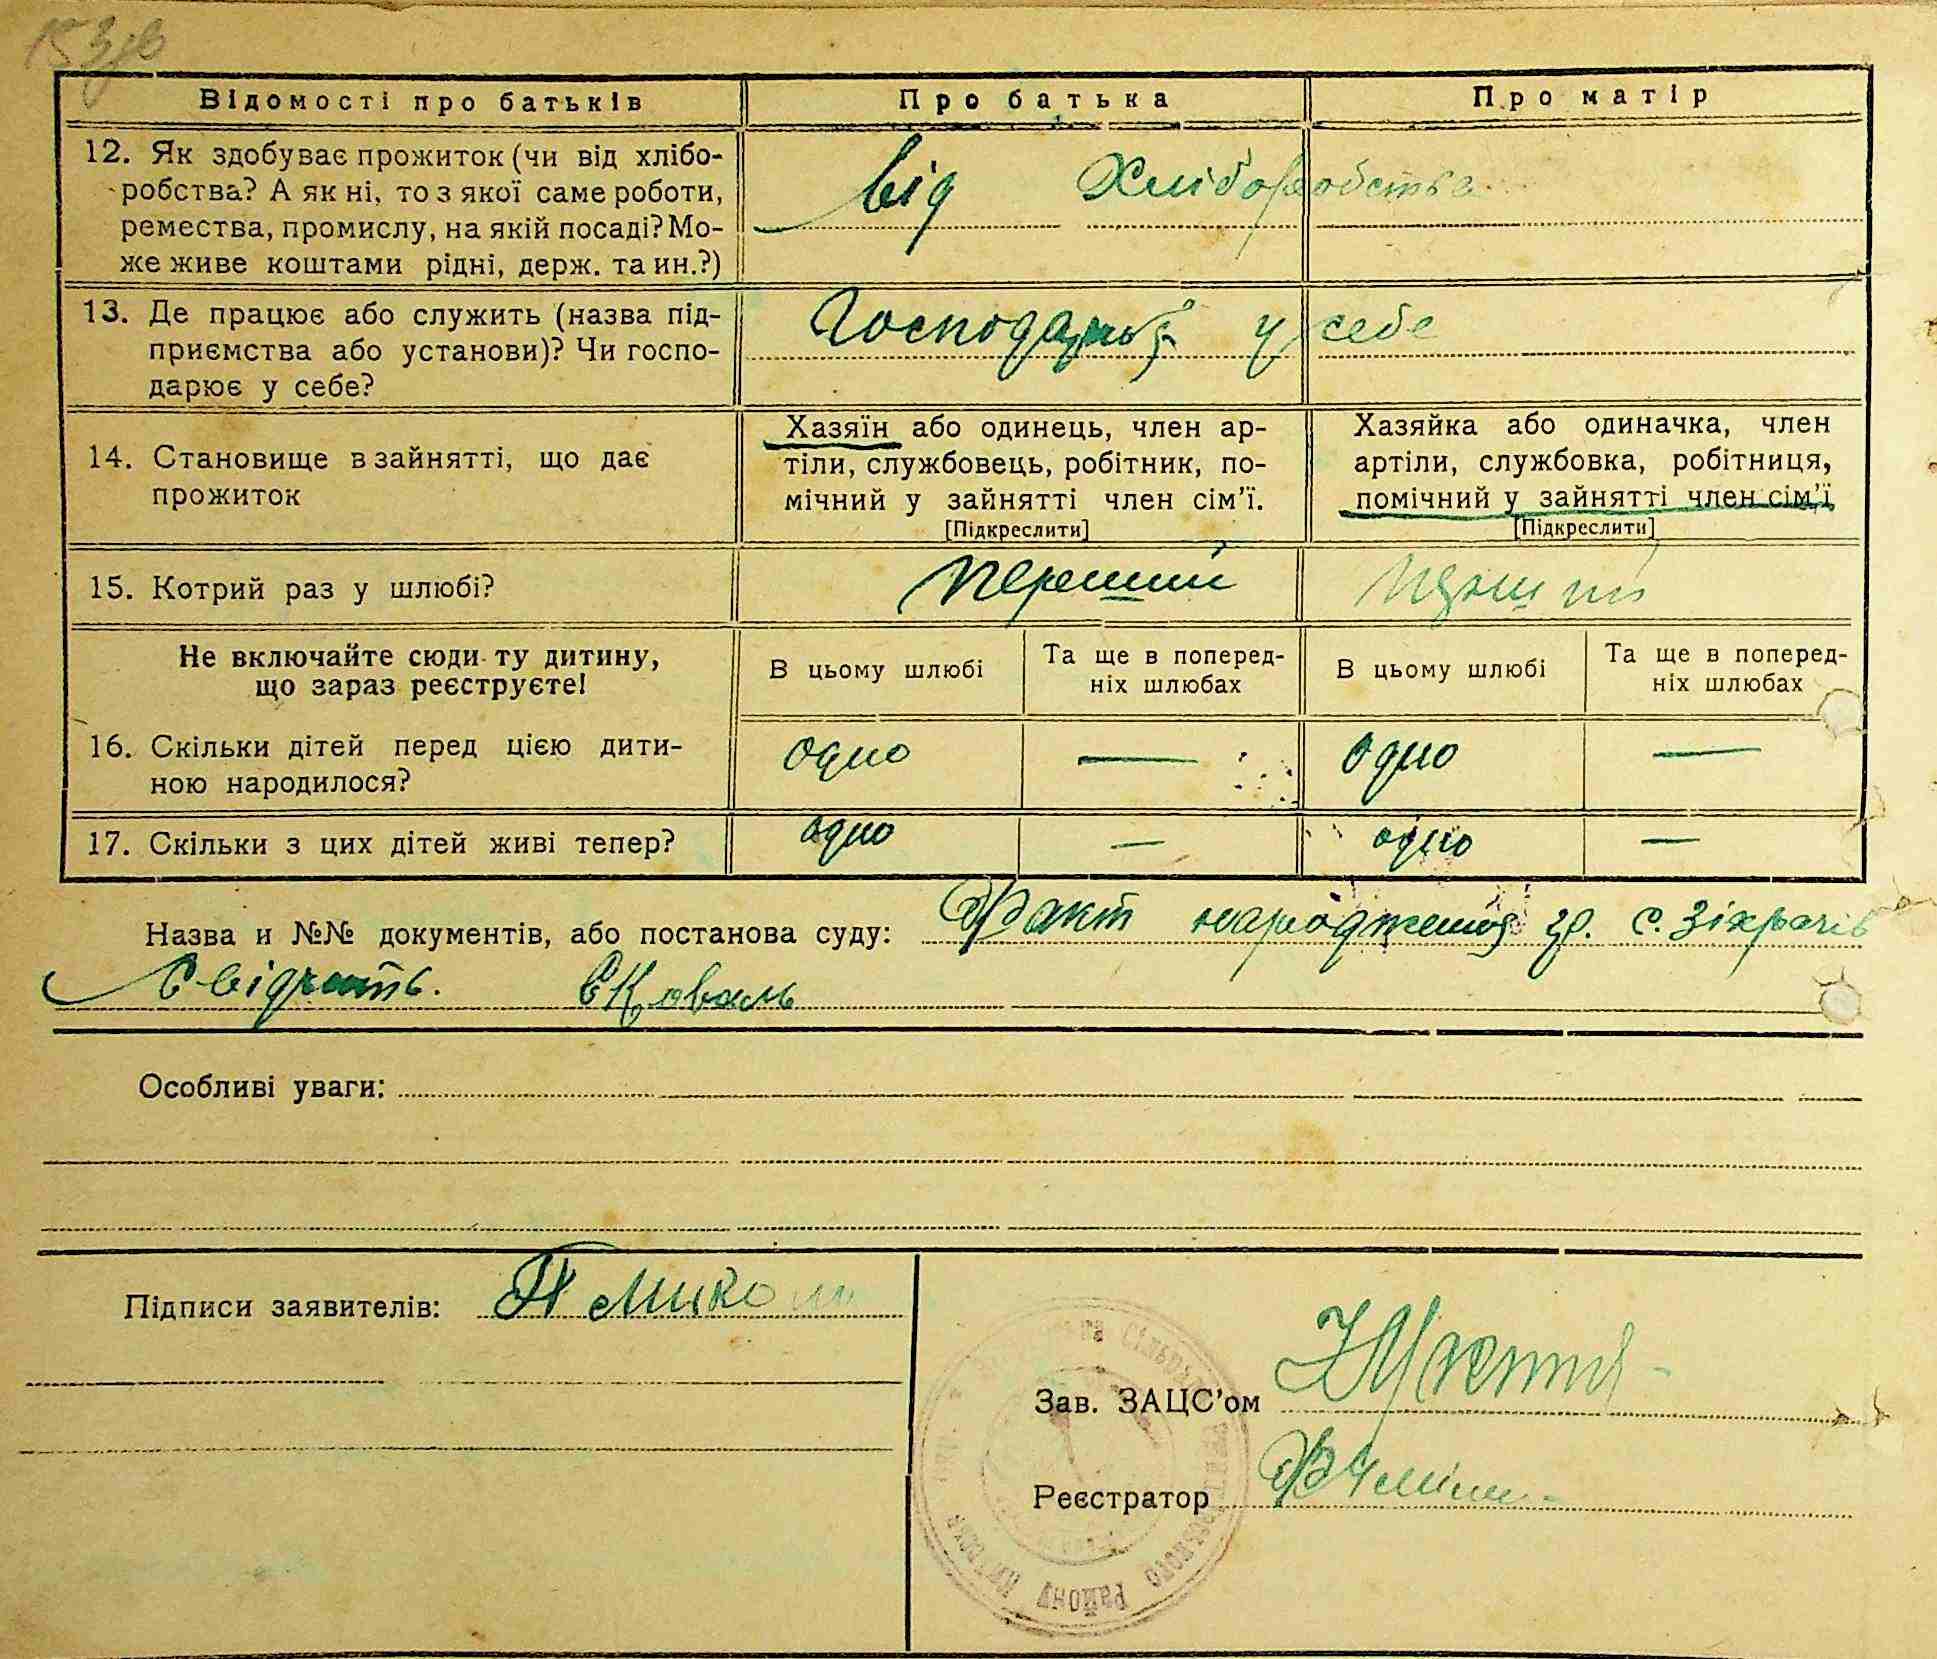 153 зв
Відомості про батьків
Про батька
Про матір
12. Як здобуває прожиток (чи від хлібо-
робства? А як ні, то з якої саме роботи,
ремества, промислу, на якій посаді? Мо-
же живе коштами рідні, держ. та ин.?)
від Хліборобства
13. Де працює або служить (назва під-
приємства або установи)? Чи госпо-
дарює у себе?
у себе
14. Становище в зайнятті, що дає
прожиток
Хазяїн або одинець, член ар-
тіли, службовець, робітник, по-
мічний у зайнятті член сім'ї.
[Підкреслити]
Хазяйка або одиначка, член
артіли, службовка, робітниця,
помічний у зайнятті член сім'ї
[Підкреслити]
15. Котрий раз у шлюбі?
перший
Не включайте сюди ту дитину,
що зараз реєструєте!
В цьому шлюбі
Та ще в поперед-
ніх шлюбах
В цьому шлюбі
Та ще в поперед-
ніх шлюбах
16. Скільки дітей перед цією дити-
ною народилося?
одно
—
одно
—
17. Скільки з цих дітей живі тепер?
одно
—
одно
—
Назва и №№ документів, або постанова суду: Факт народження гр. с. Зікрачів
Свідчить. Є Коваль
Особливі уваги:
Підписи заявителів:
Зав. ЗАЦС'ом
Реєстратор